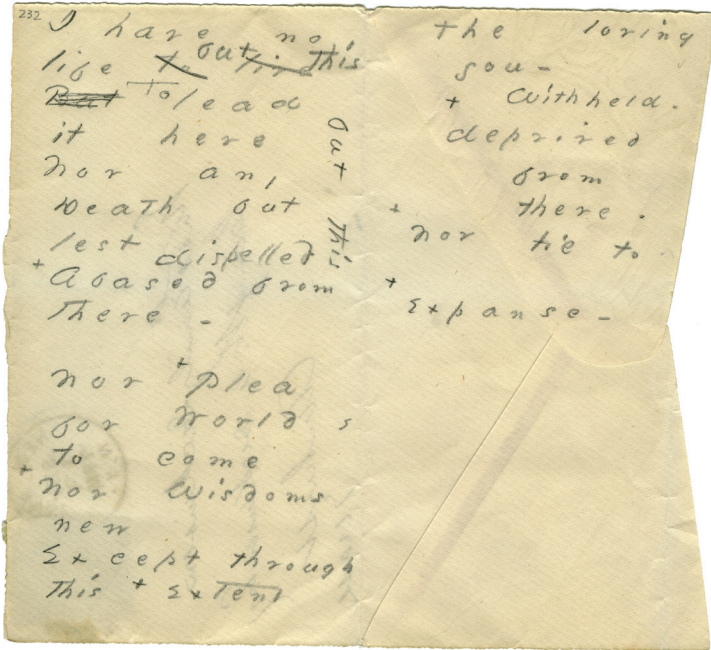 232
I have no
life to live but this
But To lead
it here
Nor any
Death but
lest dispelled
+ Abased from
there -
Nor + Plea
for World s
to come
+ Nor Wisdoms
new
Except through
this + Extent
but this
the loving
you -
+ withheld.
deprived
from
+ there.
nor tie to
+
Expanse -